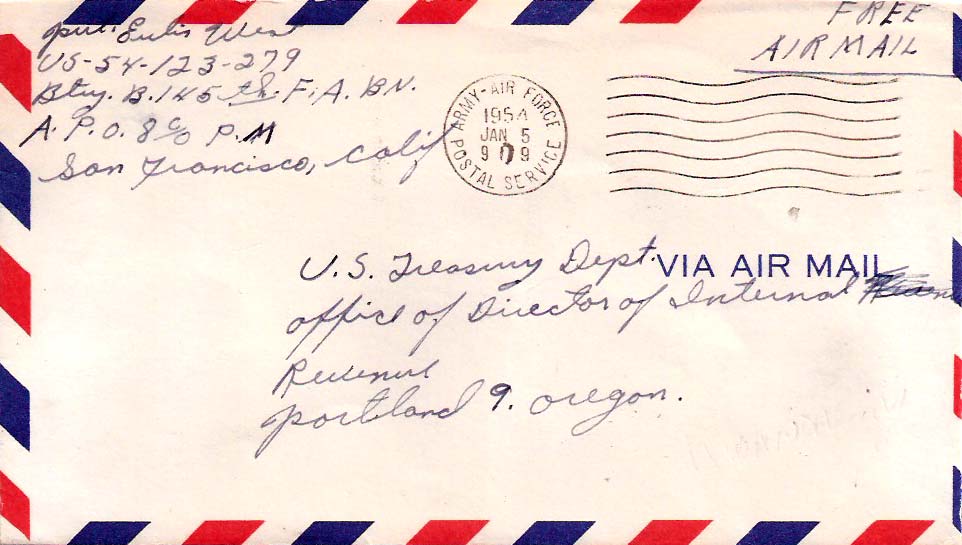 Pvt. Eulis West
US-54-123-279
Btry. B. 145 th. F.A. BN.
A.P.O. 8 c/o P.M
San Francisco, Calif
FREE
AIR MAIL
ARMY-AIR FORCE
1954
JAN 5
9 9
POSTAL SERVICE
U.S. Treasury Dept.
VIA AIR MAIL
office of Director of Internal
Revenue
portland 9. oregon.